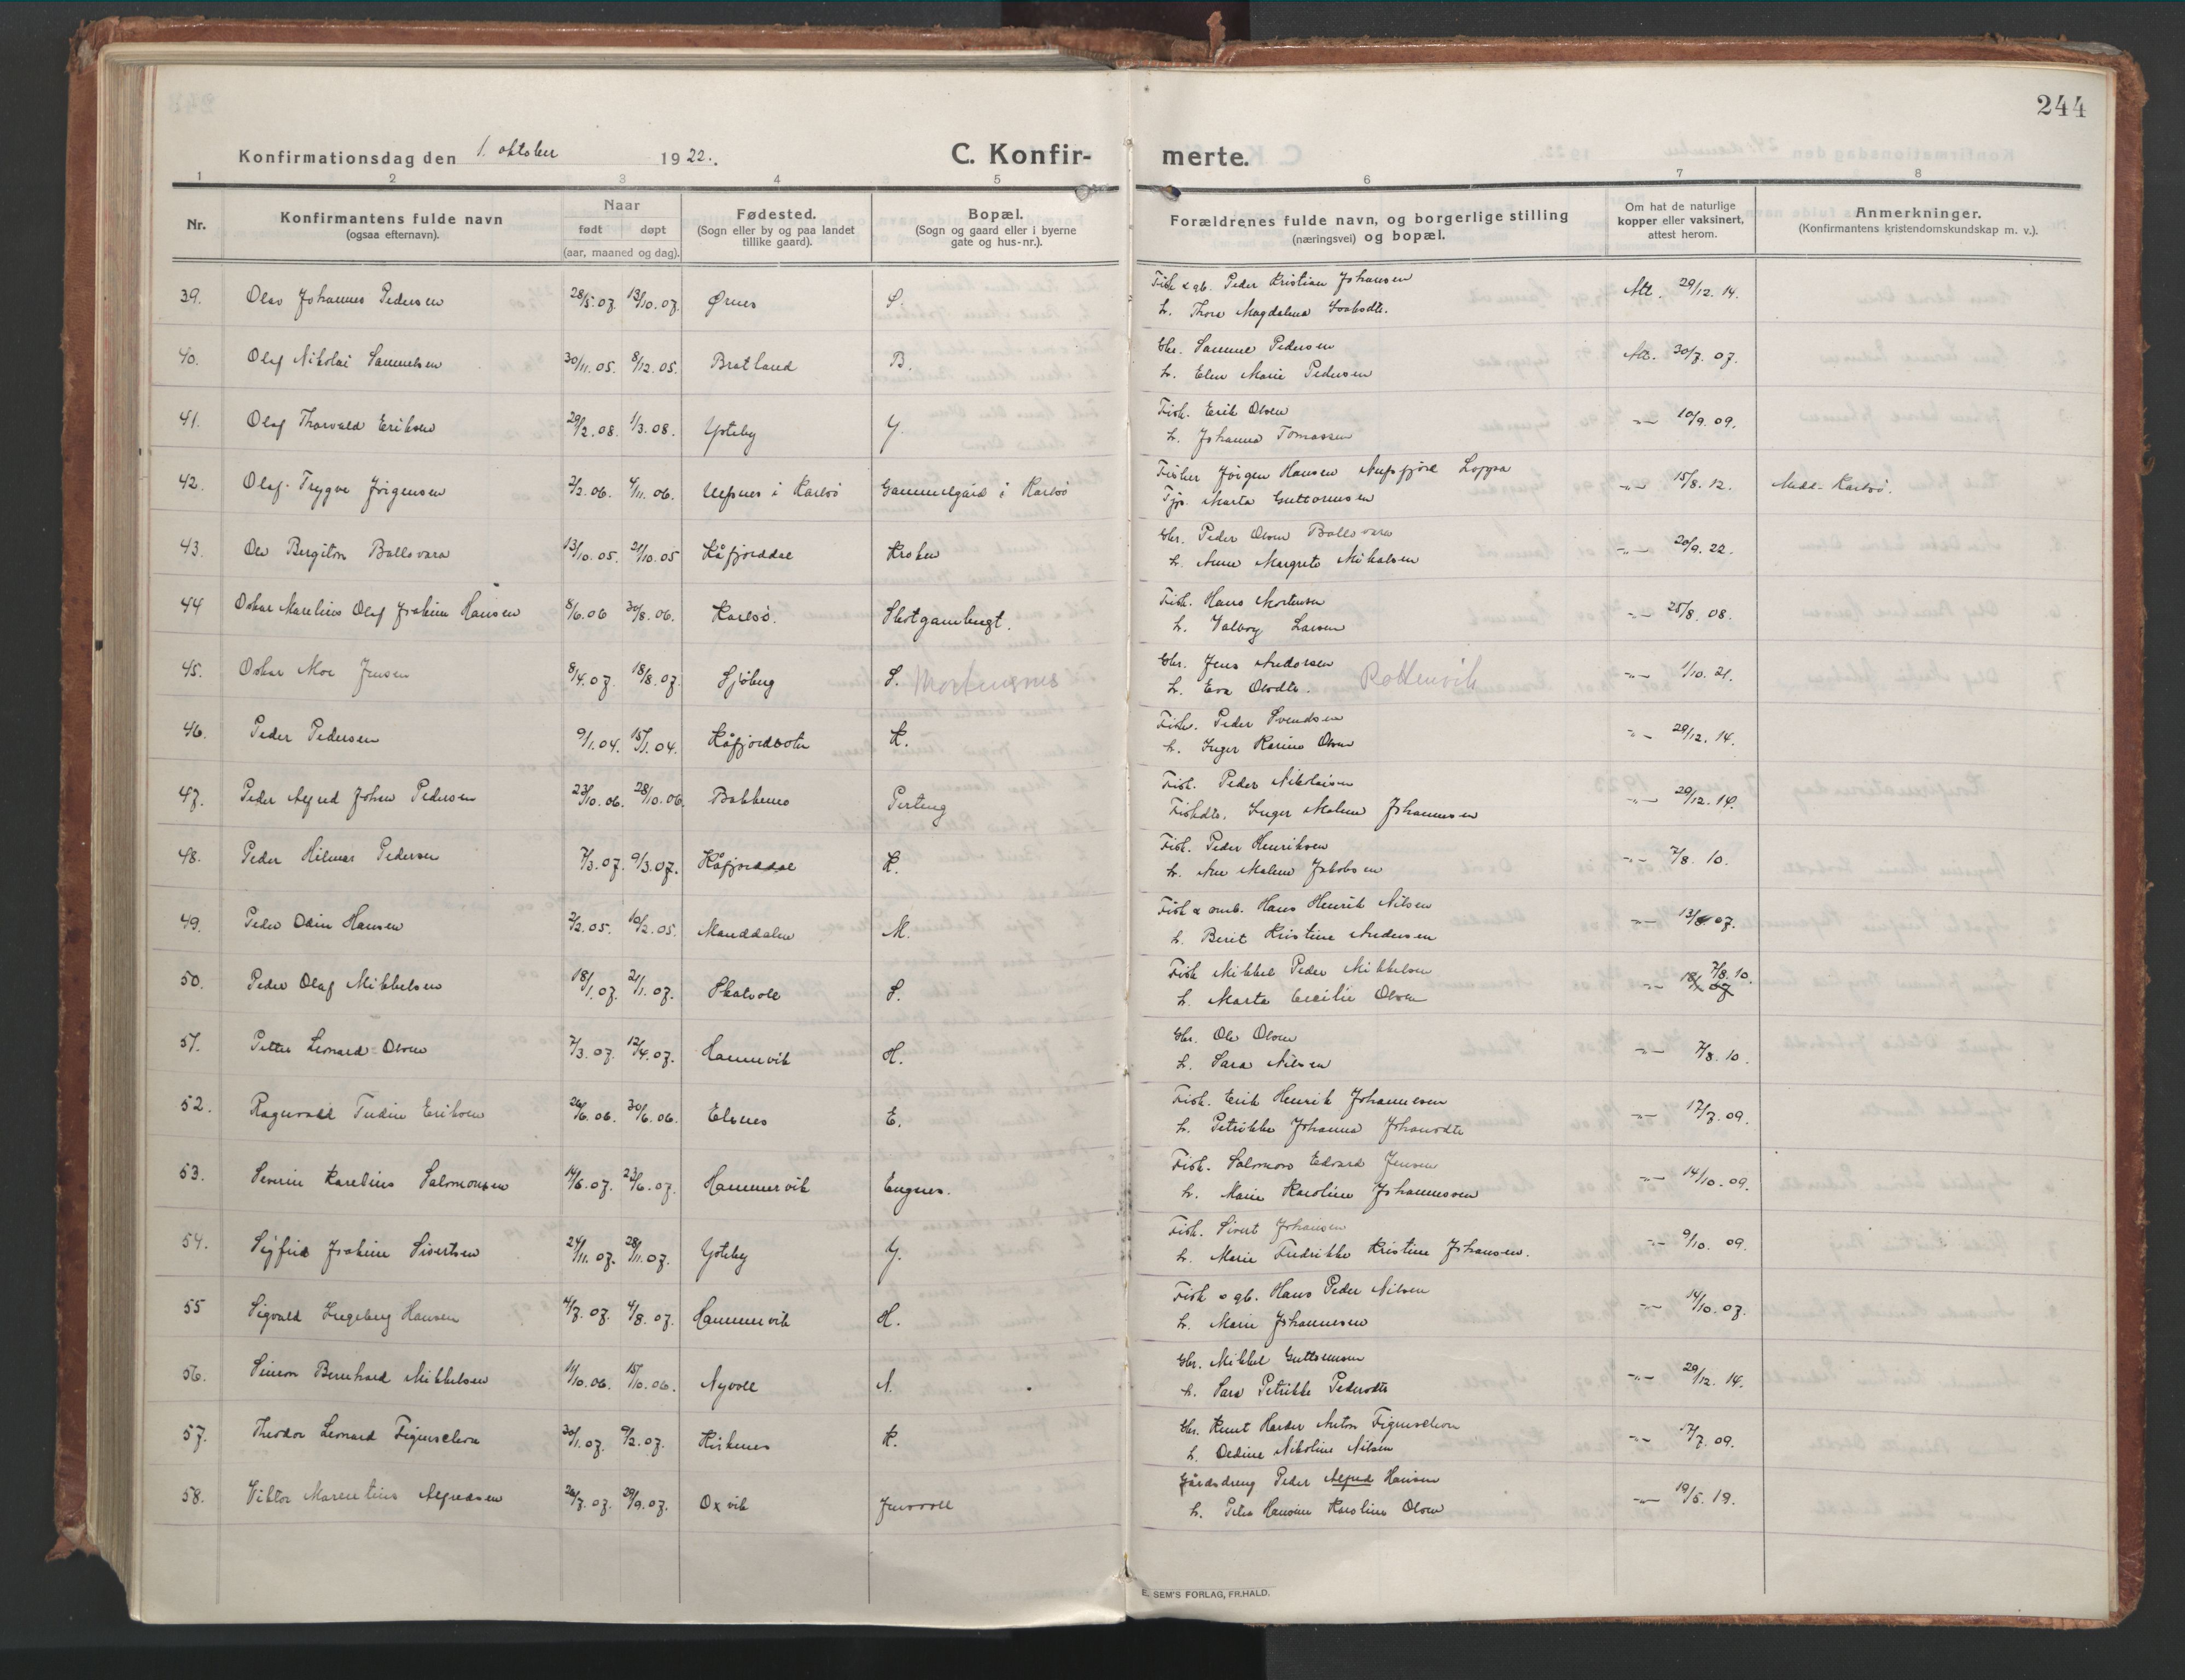 244
Konfirmationsdag den 1. oktober 1922.
C. Konfirmerte.
1 2 3 4 5 6 7 8
Nr.
Konfirmantens fulde navn
(ogsaa efternavn).
Naar
født døpt
(aar, maaned og dag).
Fødested.
(Sogn eller by og paa landet
tillike gaard).
Bopæl.
(Sogn og gaard eller i byerne
gate og hus-nr.).
Forældrenes fulde navn, og borgerlige stilling
(næringsvei) og bopæl.
Om hat de naturlige
kopper eller vaksinert,
attest herom.
Anmerkninger.
(Konfirmantens kristendomskundskap m. v.).
39. Olav Johannes Pedersen 28/5.07. 13/10.07. Ørnes S. Fisk & gb. Peder Kristian Johansen Att. 29/12.14.
h. Thora Magdalena
40. Olaf Nikolai Samuelsen 30/11.05. 8/12.05. Bratland B. Gbr. Samuel Pedersen Att. 30/7.07.
h. Elen Marie Pedersen
41. Olaf Thorvald Eriksen 29/2.08. 1/3.08. Yteby Y. Fisk. Erik Olsen -"- 10/9.09.
h. Johanna Tomassen
42. Olaf Trygve Jørgensen 2/2.06. 4/11.06. Ulfsnes i Karlsø Gammelgård i Karlsø Fisker Jørgen Hansen Nufsfjord Loppa -"- 15/8.12. Medd. Karlsø.
Tjp. Marta Guttormsen
43. Ole Bergiton Ballovara 13/10.05. 21/10.05 Kåfjorddal Kroken Gbr. Peder Olsen Ballovara -"- 20/9.22.
h. Anne Margrete Mikalsen
44 Oskar Marelius Olaf Joakim Hansen 8/6.06 30/8.06. Karlsø. Skotgambugt. Fisk. Hans Mortensen -"- 25/8.08.
h. Valborg Larsen
45. Oskar Moe Jensen 8/4.07. 18/8.07. Sjøberg S. Mortensnes Gbr. Jens Andersen Rottenvik -"- 1/10.21.
h. Eva Olsdtr.
46. Peder Pedersen 9/1.04. 15/1.04. Kåfjordbotn K. Fisk. Peder Svendsen -"- 29/12.14.
h. Inger Karine Olsen
47. Peder Alfred Johan Pedersen 23/10.06. 28/10.06. Bakkenes Perteng Fisk. Peder Nikolaisen -"- 29/12.14.
Fiskdtr. Inger Malene Johannesen
48. Peder Hilmar Pedersen 7/3.07. 9/3.07. Kåfjorddal K. Fisk. Peder Henriksen -"- 7/8.10.
h. Ane Malene Jakobsen
49. Peder Odin Hansen 2/2.05. 10/2.05. Manddalen M. Fisk & smb. Hans Henrik Nilsen -"- 13/8.07.
h. Berit Kristine Andersen
50. Peder Olaf Mikkelsen 18/1.07. 21/1.07. Skatvold S. Fisk Mikkel Peder Mikkelsen -"- 7/8.10.
h. Marta Cecilie Olsen
51. Petter Leonard Olsen 7/3.07. 12/4.07. Hammervik H. Gbr. Ole Olsen -"- 7/8.10.
h. Sara Nilsen
52. Ragnvald Tudin Eriksen 26/6.06. 30/6.06. Elvnes E. Fisk. Erik Henrik Johannesen -"- 17/7.09.
h. Petrikke Johanna Johansdtr
53. Severin Karelius Salomonsen 14/6.07. 23/6.07. Hammervik Engnes. Fisk. Salomon Edvard Jensen -"- 14/10.09.
h. Marie Karoline Johannessen
54. Sigfrid Joakim Sivertsen 24/11.07. 28/11.07. Yteby Y. Fisk. Sivert Johansen -"- 9/10.09.
h. Marie Fredrikke Kristine Johansen.
55 Sigvald Ingeberg Hansen 4/7.07. 4/8.07. Hammervik H. Fisk & gb. Hans Peder Nilsen -"- 14/10.07.
h. Marie Johannesen
56. Simon Bernhard Mikkelsen 11/10.06. 15/10.06. Nyvoll N. Gbr. Mikkel Guttormsen -"- 29/12.14.
h. Sara Petrikke Pedersdtr
57. Theodor Leonard Figenschou 30/1.07. 9/2.07. Kirkenes K. Gbr. Knut Harder Anton Figenschou -"- 17/7.09.
h. Oldine Nikoline Nilsen
58. Viktor Marentius Alfredsen 26/7.07. 29/9.07. Oxvik Jensvoll Gårdsdreng Peder Alfred Hansen -"- 19/5.19.
h. Petra Hansine Karoline Olsen
E. SEM'S FORLAG, FR.HALD.